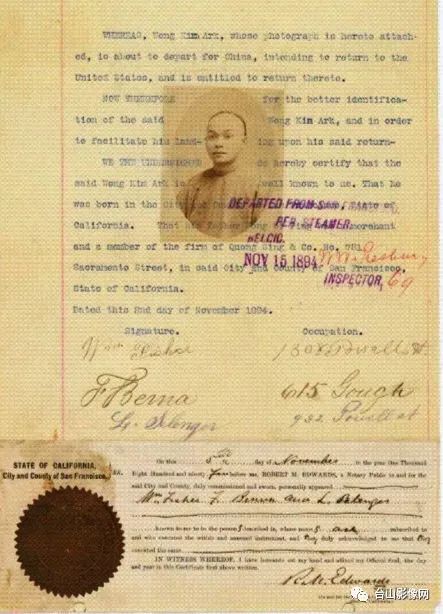 WHEREAS, Wong Kim Ark, whose photograph is hereto attach-
ed, is about to depart for China, intending to return to the
United States, and is entitled to return thereto.
NOW THEREFORE for the better identifica-
tion of the said Wong Kim Ark, and in order
to facilitate his land- ing upon his said return-
WE THE UNDERSIGNED do hereby certify that the
said Wong Kim Ark is well known to us. That he
was born in the City and State of
California. That his father merchant
and a member of the firm of Quong Sing & Co. No. 751
Sacramento Street, in said City and County of San Francisco,
State of California.
DEPARTED FROM SAN
PER STEAMER
BELGIC.
NOV 15 1894
INSPECTOR, 69
Dated this 2nd day of November 1894.
Signature. Occupation.
Wm Fisher
F Benna 615 Gough
L. Selenger 932 Powell st
STATE OF CALIFORNIA,
City and County of San Francisco.
ss.
On this 5th day of November in the year One Thousand
Eight Hundred and ninety four before me, ROBERT M. EDWARDS, a Notary Public in and for the
said City and County, duly commissioned and sworn, personally appeared
Wm. Fisher F. Benna and L. Selenger
known to me to be the person s described in, whose name s are subscribed to
and who executed the within and annexed instrument, and they duly acknowledged to me that they
executed the same.
IN WITNESS WHEREOF, I have hereunto set my hand and affixed my Official Seal, the day
and year in this Certificate first above written.
R. M. Edwards
台山影像网